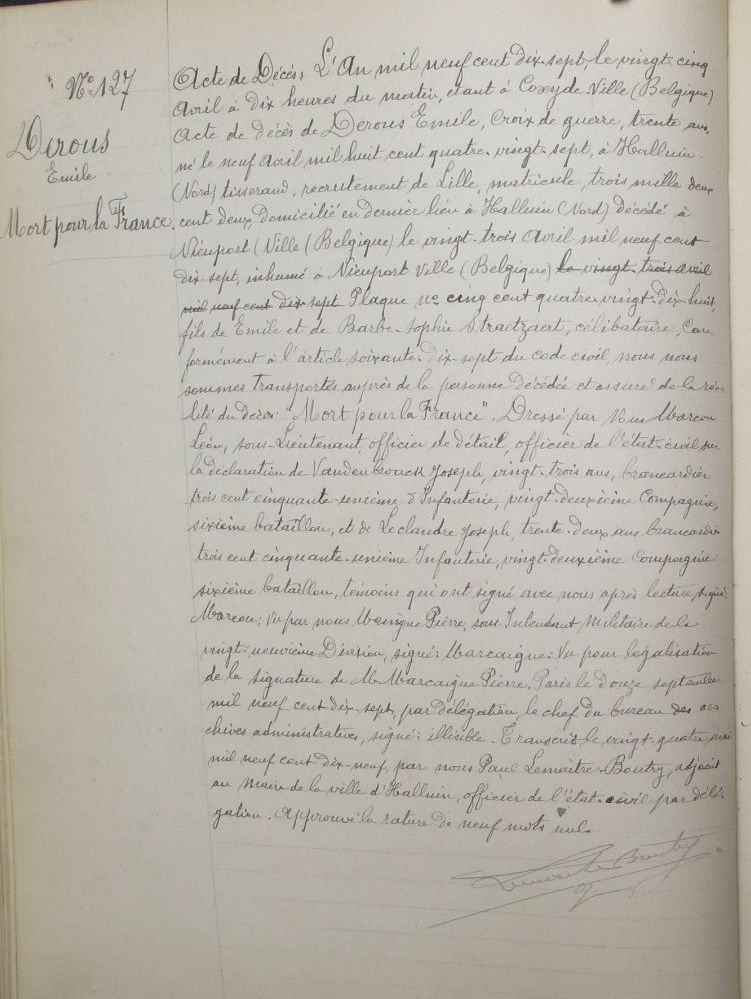 N° 127
Derous
Emile
Mort pour la France.
Acte de Décès: L'An mil neuf cent dix-sept, le vingt-cinq
Avril à dix heures du matin, étant à Coxyde Ville (Belgique)
Acte de décès de Derous Emile, Croix de guerre, trente ans,
né le neuf Avril mil huit cent quatre-vingt-sept, à Halluin.
(Nord) tisserand, recrutement de Lille, matricule, trois mille deux
cent deux, Domicilié en dernier lieu à Halluin (Nord) décédé à
Nieuport (Ville (Belgique) le vingt-trois Avril mil neuf cent
dix-sept, inhumé à Nieuport Ville (Belgique) le vingt-trois avril
mil neuf cent dix-sept Plaque n° cinq cent quatre-vingt-dix-huit,
fils de Emile et de Barbe-Sophie Straetzaert, célibataire, Con
formément à l'article soixante-dix-sept du code civil, nous nous
sommes transportés auprès de la personne décédée et assuré de la réa
lité du décès. "Mort pour la France". Dressé par Nous Marceau
Léon, sous-Lieutenant, officier de détail, officier de l'état-civil sur
la déclaration de Vandenbrouck Joseph, vingt-trois ans, brancardier
trois cent cinquante- d'Infanterie, vingt-deuxième Compagnie,
sixième bataillon, et de Leclandre Joseph, trente-deux ans brancardier
trois cent cinquante- Infanterie, vingt-deuxième Compagnie
sixième bataillon, témoins qui ont signé avec nous après lecture, signé:
Marceau: Vu par nous Pierre, sous Intendant Militaire de la
vingt-neuvième Division, signé: Marcaigne: Vu pour légalisation
de la signature de M. Marcaigne Pierre, Paris le douze septembre
mil neuf cent dix-sept, par délégation, le chef du bureau des ar
chives administratives, signé: illisible. Transcrit le vingt-quatre mai
mil neuf cent dix-neuf, par nous Paul Lemaitre-Boutry, adjoint
au Maire de la ville d'Halluin, officier de l'état-civil par délé
gation. Approuvé la rature de neuf mots nul.
Lemaitre Boutry